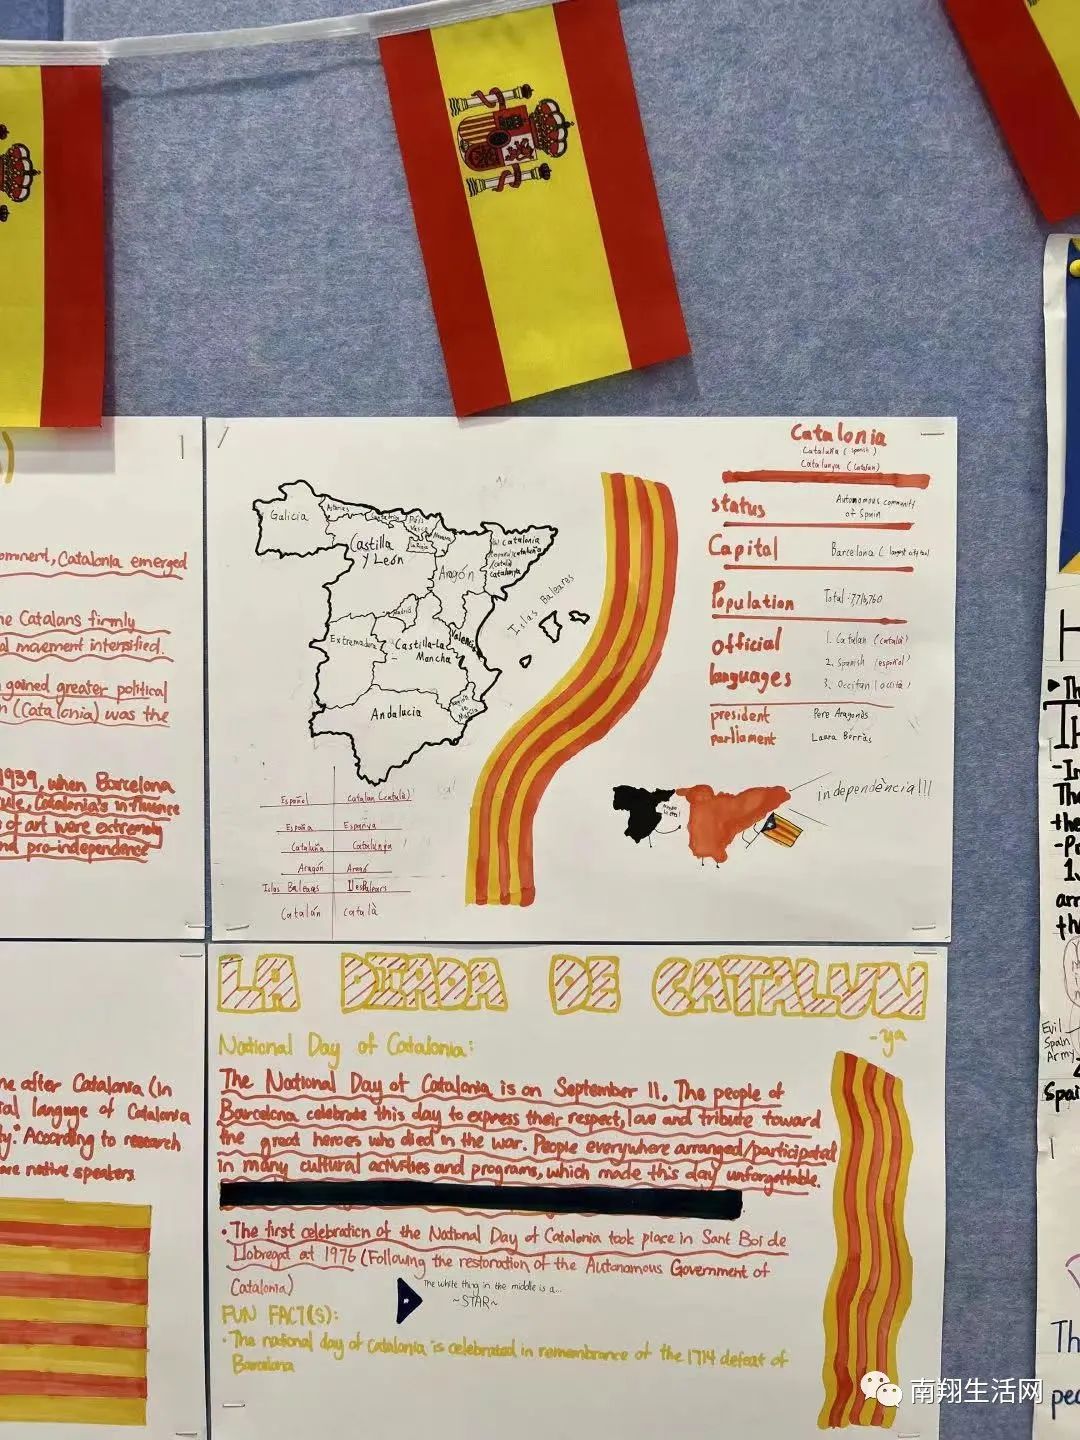 omnent, Catalonia emerged
he Catalans firmly
al movement intensified.
n gained greater political
n (Catalonia) was the
1939, when Barcelona
rule, Catalonia's influence
s of art were extremely
nd pro-independence
Galicia
Asturias
Cantabria
País
Vasco
Navarra
La Rioja
Castilla
y León
Aragón
Catalonia
cataluña
(català)
catalunya
Islas Baleares
Madrid
Extremadura
Castilla-La
- Mancha
Valencia
Región de
Murcia
Andalucia
Español Catalan (català)
España Espanya
Cataluña Catalunya
Aragón Aragó
Islas Baleares Illes Balears
Catalán català
Catalonia
Cataluña (spanish)
Catalunya (Catalan)
status Autonomous community
of Spain
Capital Barcelona (largest city too)
Population Total: 7,716,760
official
languages
1. Catalan (català)
2. Spanish (español)
3. Occitan (occità)
president Pere Aragonès
parliament Laura Borràs
independència!!!
ne after Catalonia (in
ral language of Catalonia
ty." According to research
are native speakers.
LA DIADA DE CATALUN
-ya
National Day of Catalonia:
The National Day of Catalonia is on September 11. The people of
Barcelona celebrate this day to express their respect, love and tribute toward
the great heroes who died in the war. People everywhere arranged/participated
in many cultural activities and programs, which made this day unforgettable.
• The first celebration of the National Day of Catalonia took place in Sant Boi de
Llobregat at 1976 (Following the restoration of the Autonomous Government of
Catalonia)
The white thing in the middle is a...
~STAR~
FUN FACT(S):
• The national day of catalonia is celebrated in remembrance of the 1714 defeat of
Barcelona
H
Th
- In
The
the
- Pr
arr
th
Evil
Spain
Army
Spai
Th
peo
南翔生活网